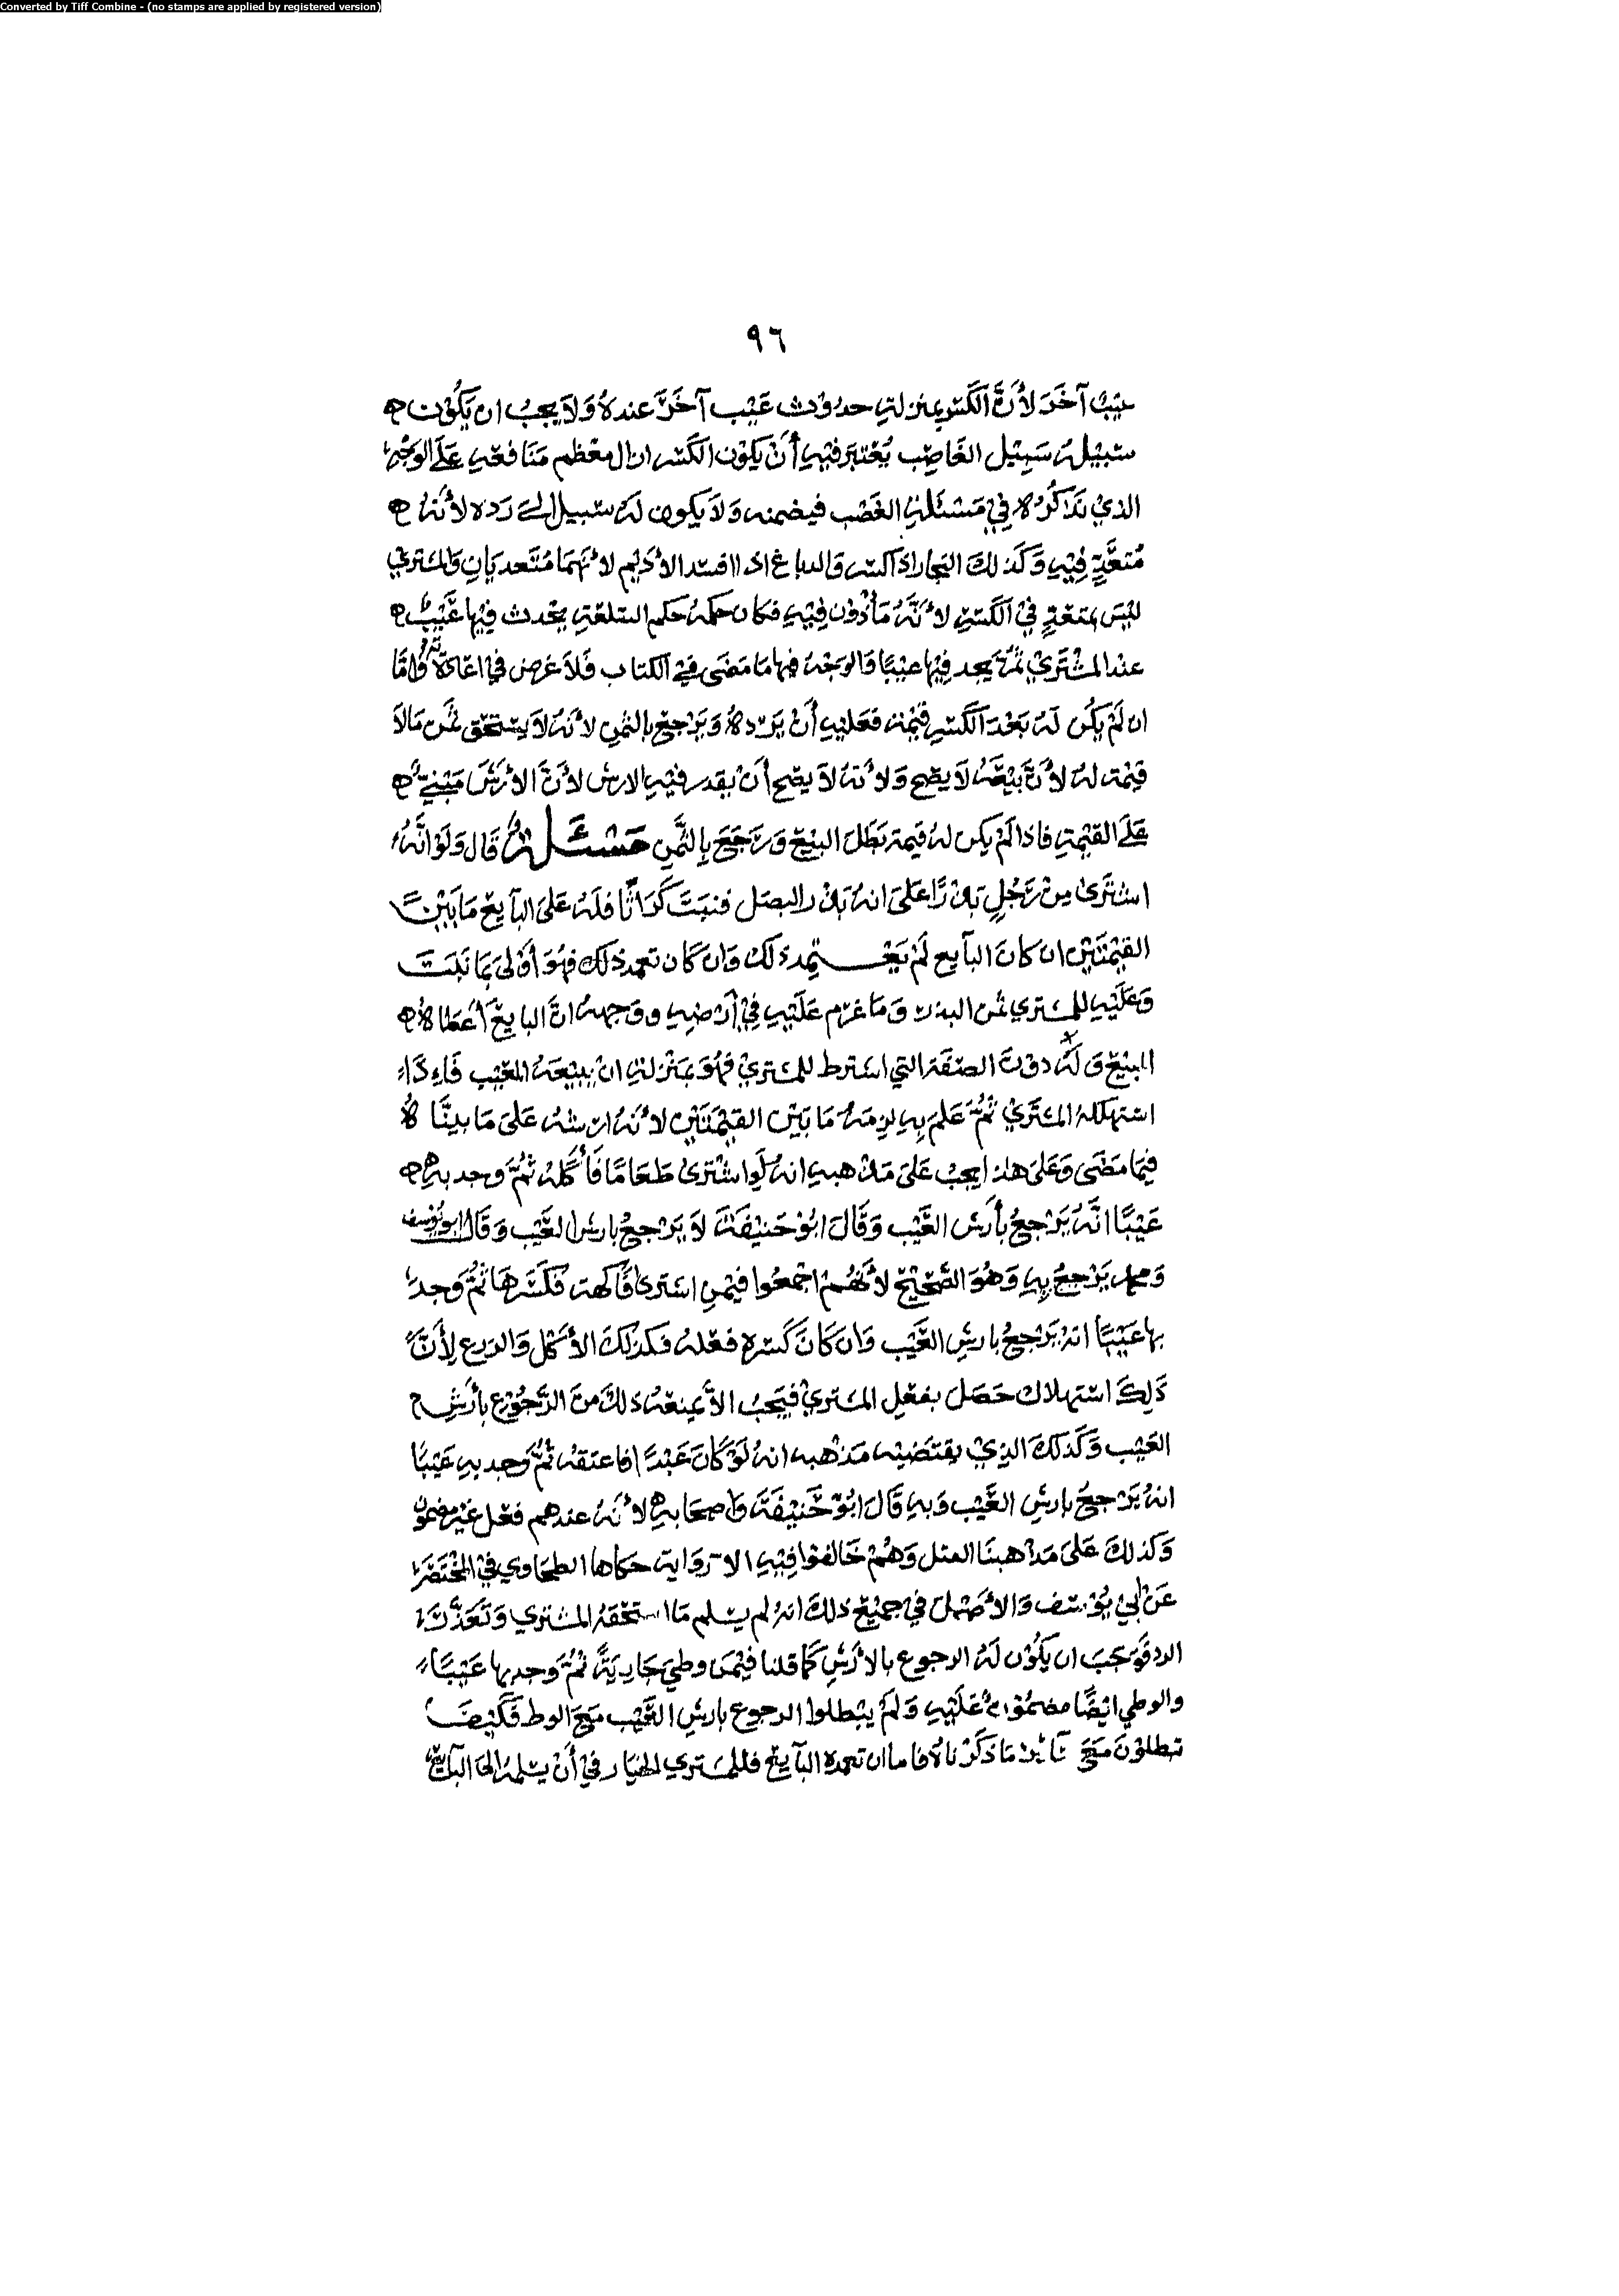 Converted by Tiff Combine - (no stamps are applied by registered version)
٩٦
عيبٌ آخَر لأَنَّ الكَسْر بمنزلةِ حدُوْث عَيْب آخَرَ عندهُ وَلاَ يجبُ ان يَكُوْن
سَبيْلهُ سَبيْل الغَاصِب يُعْتبَر فيْهِ أَنْ يكوْن الكَسْر ازال معْظم مَنَافعهِ عَلَى الوَجْهِ
الذيْ نَذْكُرُه فيْ مَسْئَلةِ الغَصْب فيضمنه وَلاَ يكون لهُ سَبيل الى رَده لأنهُ
مُتعَدٍّ فيْهِ وَكَذلكَ النجار اذا كسر والدباغ اذا افسَد الأَديم لأَنَّهُمَا مُتَعديَانِ وَالمشتري
ليْسَ بمتعَدٍّ فيْ الكَسْرِ لأَنَّهُ مَأْذوْن فِيْهِ فكان حكمهُ حكم السّلعَةِ يحْدث فِيْهَا عَيْبٌ
عند المشْتَريْ ثمَّ يجد فِيْها عيْبًا فالوَجْهُ فيها مَا مَضَى فِيْ الكتاب فَلاَ غرض فيْ اعَادَتهِ وَامَّا
ان لَمْ يكُن لهُ بَعْدَ الكَسْرِ قيْمة فعَليهِ أَنْ يَرّدهُ وَيَرْجع بالثمنِ لأنهُ لاَ يسْتَحق ثمن مَا لاَ
قيْمة لهُ لأَنَّ بَيْعَهُ لاَ يصَح وَلأنهُ لاَ يصَح أَنْ يقدر فيْهِ الارش لأَنَّ الأَرْشَ مَبْنيٌّ
عَلَى القيْمةِ فاذا لَمْ يكن لهُ قيمة بَطلَ البيْع وَرَجَعَ بِالثَّمَنِ مَسْئَلةٌ قَال وَلَوْ انَّهُ
اشتَرى مِنْ رَجُلٍ بذرًا عَلَى انهُ بذر البصَل فنبَتَ كرَاثًا فلهُ عَلَى البآيع مَا بَيْنَ
القيْمتَيْن ان كانَ البآيع لَمْ يتعَمد ذلكَ وَان كَان تعمد ذلك فهُوَ أَوْلَى بمَا نَبتَ
وَعَلَيْهِ للمشتري ثمن البذر وَمَا غرم عَلَيْهِ فيْ أرْضهِ ووَجهه انَّ البايعَ أعْطاهُ
المبيْعَ وَلهُ دوْنَ الصفَة التي اشترط للمشتريْ فهُوَ بمَنْزلةِ انْ يبيْعَهُ المعيْب فَاءذَا
استهلكهُ المشتَريْ ثمَّ عَلمَ بِهِ لزمَهُ مَا بَيْن القيْمتَيْن لأنهُ ارشه عَلَى مَا بينَّاهُ
فيْمَا مَضَى وَعَلَى هذا يجبُ عَلَى مَذْهبهِ انهُ لَو اشْتَرى طعَامًا فَأَكَلهُ ثمَّ وجد بهِ
عَيْبًا انَّهُ يَرْجعُ بأرش العَيْب وَقَالَ ابُوْ حَنيْفَةَ لاَ يَرْجعُ بارش العَيْب وَقَالَ ابو يُوْسف
وَمحمد يَرْجعُ بهِ وَهُوَ الصَّحيْح لأَنَّهُمْ اجْمعُوا فيْمنِ اشترى فَاكهة فكَسَرهَا ثمَّ وَجدَ
بهَا عَيْبًا انهُ يَرْجعُ بارشِ العَيْب وَان كَانَ كَسْره فعْلهُ فكذلكَ الأَكْل وَالزرع لأَنَّ
ذَلِكَ استهلاك حَصَل بفعْلِ المشتريْ فيَجبُ الاَّ يمنعَهُ ذلكَ منَ الرّجُوْع بأرشِ
العَيْب وَكَذلكَ الذيْ يقتضيْه مَذْهبه انهُ لَوْ كَانَ عَبْدًا فاعتقهُ ثمَّ وَجد بهِ عَيْبًا
انهُ يَرْجعُ بارشِ العَيْب وَبهِ قَالَ ابُوْ حَنيْفَةَ وَاصحَابه لأنهُ عندهم فعْل غيْر مضموْن
وَكَذلكَ عَلَى مَذاهبنَا العتق وَهُمْ خَالفوْا فِيْهِ الا رَواية حكاها الطحاوي فيْ المخْتَصَر
عَنْ أَبيْ يوْسف وَالأَصْل فيْ جميْع ذلكَ انهُ لم يسَلم مَا استحَقهُ المشتري وَتَعَذّرَ
الرد فوَجبَ ان يكُوْن لهُ الرجوع بالأَرشِ كمَا قلنا فيْمَن وطيَ جَاريَةً ثمَّ وجد بها عَيْبًا
والوطي ايْضًا مضمُوْن عَليْهِ وَلَمْ يبْطلوا الرجوع بارشِ العَيْب مَعَ الوطء فَكَيْف
تبطلوْنَ مَعَ مَا ذكَرْناهُ فاما ان تعمده البآيع فللمشتري الخيار فيْ أَنْ يسَلمهُ الى البآيع